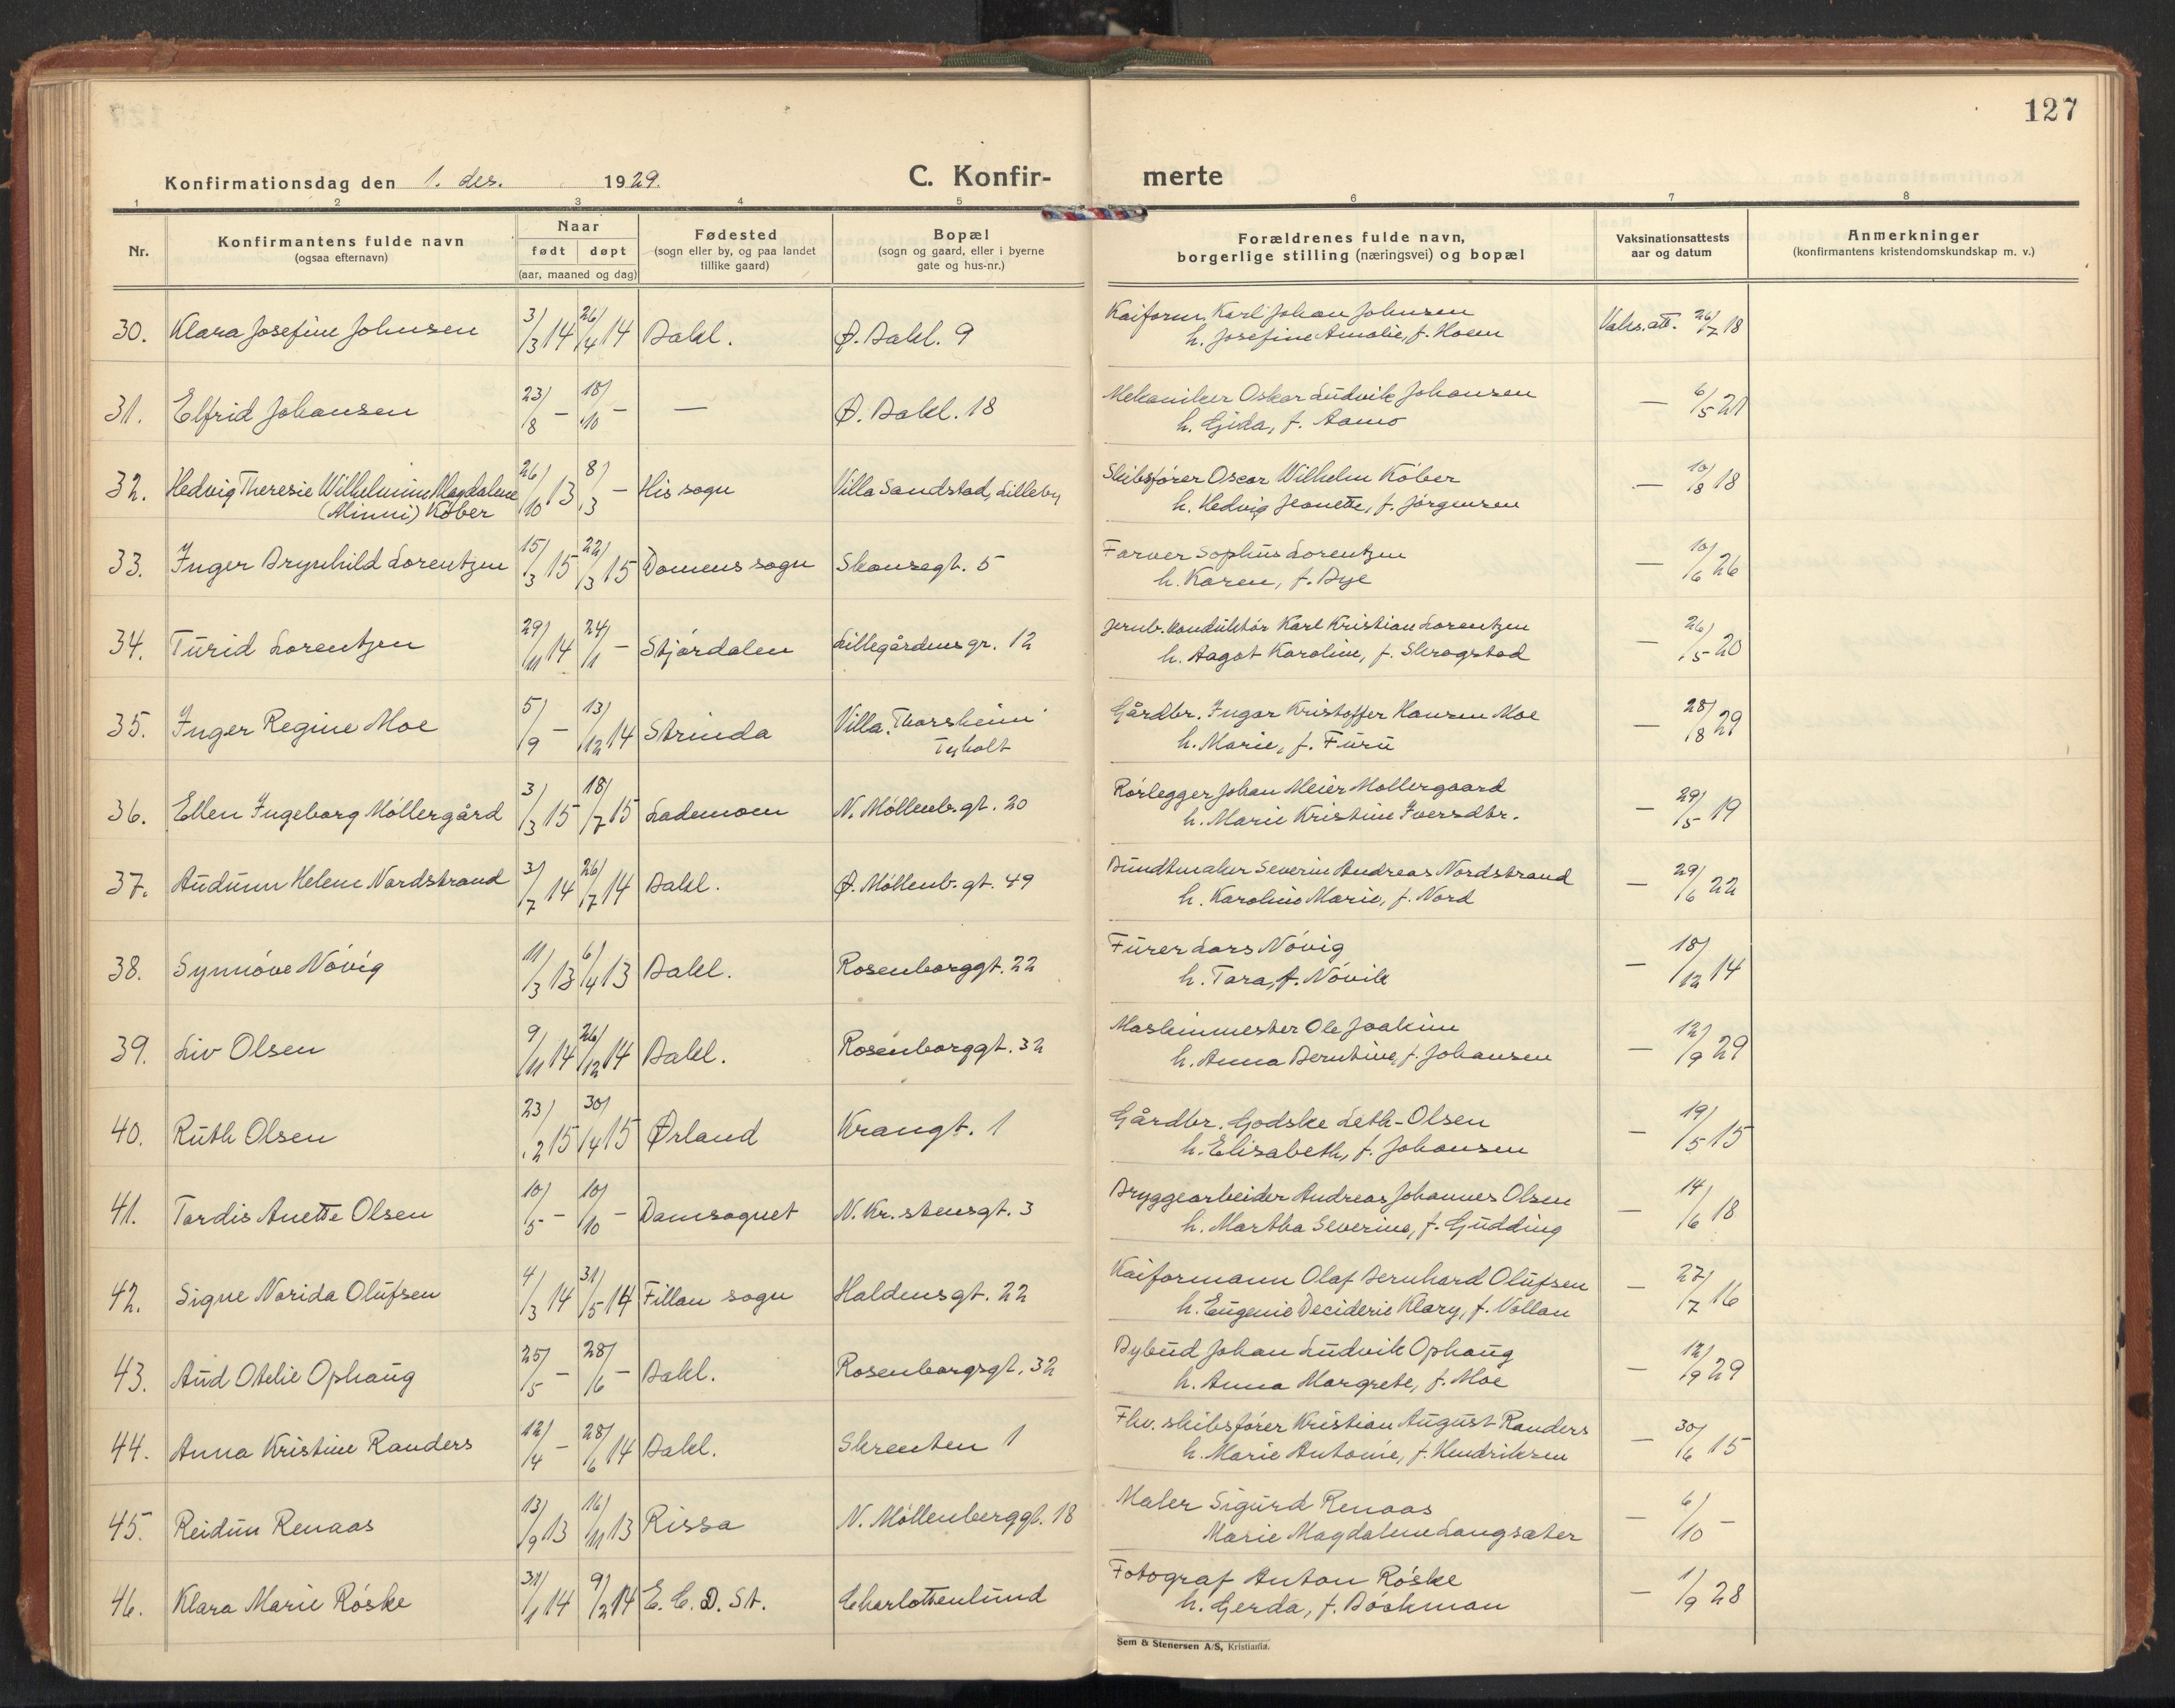 127
Konfirmationsdag den 1. des. 1929.
C. Konfir-
merte
1 2 3 4 5 6 7 8
Nr.
Konfirmantens fulde navn
(ogsaa efternavn)
Naar
født døpt
(aar, maaned og dag)
Fødested
(sogn eller by, og paa landet
tillike gaard)
Bopæl
(sogn og gaard, eller i byerne
gate og hus-nr.)
Forældrenes fulde navn,
borgerlige stilling (næringsvei) og bopæl
Vaksinationsattests
aar og datum
Anmerkninger
(konfirmantens kristendomskundskap m. v.)
30. Klara Josefine Johnsen 3/3 14 26/4 14 Bakl. Ø. Bakl. 9
Kaiform. Karl Johan Johnsen
h. Josefine Amalie, f. Hoem
Vaks.att. 26/7 18
31. Elfrid Johansen 23/8 – 18/10 – — Ø. Bakl. 18
Mekaniker Oskar Ludvik Johansen
h. Gida, f. Aamo
— 6/5 21
32. Hedvig Theresie Wilhelmine Magdalene
(Minni) Köber
26/10 13 8/3 – His sogn Villa Sandstad, Lilleby
Skibsfører Oscar Wilhelm Köber
h. Hedvig Jeanette, f. Jörgensen
— 10/8 18
33. Inger Brynhild Lorentzen 15/3 15 22/3 15 Domens sogn Skansegt. 5
Farver Sophus Lorentzen
h. Karen, f. Bye
— 10/6 26
34. Turid Lorentzen 29/11 14 24/1 – Stjördalen Lillegårdensgr. 12
Jernb.konduktör Karl Kristian Lorentzen
h. Aagot Karoline, f. Skrogstad
— 26/5 20
35. Inger Regine Moe 5/9 – 13/12 14 Strinda Villa Thorsheim
Tyholt
Gårdbr. Ingar Kristoffer Hansen Moe
h. Marie, f. Furu
— 28/8 29
36. Ellen Ingeborg Möllergård 3/3 15 18/7 15 Lademoen N. Möllenb.gt. 20
Rörlegger Johan Meier Mollergaard
h. Marie Kristine Iversdtr.
— 29/5 19
37. Audunn Helene Nordstrand 3/7 14 26/7 14 Bakl. Ø. Möllenb.gt. 49
Bundtmaker Severin Andreas Nordstrand
h. Karoline Marie, f. Nord
— 29/6 22
38. Synnöve Növig 11/3 13 6/4 13 Bakl. Rosenborggt. 22
Furer Lars Növig
h. Tara, f. Növik
— 18/12 14
39. Liv Olsen 9/11 14 26/12 14 Bakl. Rosenborggt. 32
Maskinmester Ole Joakim
h. Anna Berntine, f. Johansen
— 12/9 29
40. Ruth Olsen 23/2 15 30/4 15 Ørland Krangt. 1
Gårdbr. Godske Leth-Olsen
h. Elisabeth, f. Johansen
— 19/5 15
41. Tordis Anette Olsen 10/5 – 10/10 – Domsognet N. Kr.stensgt. 3
Bryggearbeider Andreas Johannes Olsen
h. Martha Severine, f. Gudding
— 14/6 18
42. Signe Narida Olufsen 4/3 14 31/5 14 Fillan sogn Haldensgt. 22
Kaiformann Olaf Bernhard Olufsen
h. Eugenie Deciderie Klary, f. Vollan
— 27/7 16
43. Aud Otelie Ophaug 25/5 – 28/6 – Bakl. Rosenborgsgt. 32
Bybud Johan Ludvik Ophaug
h. Anna Margrete, f. Moe
— 12/9 29
44. Anna Kristine Randers 12/4 – 28/6 14 Bakl. Skrenten 1
Fhv. skibsfører Kristian August Randers
h. Marie Antonie, f. Hendriksen
— 30/6 15
45. Reidun Renaas 13/9 13 16/11 13 Rissa N. Möllenberggt. 18
Maler Sigurd Renaas
Marie Magdalene Langsater
— 6/10 –
46. Klara Marie Röske 31/1 14 9/2 14 E. C. D. St. Charlottenlund
Fotograf Anton Röske
h. Gerda, f. Böckman
— 1/9 28
Sem & Stenersen A/S, Kristiania.